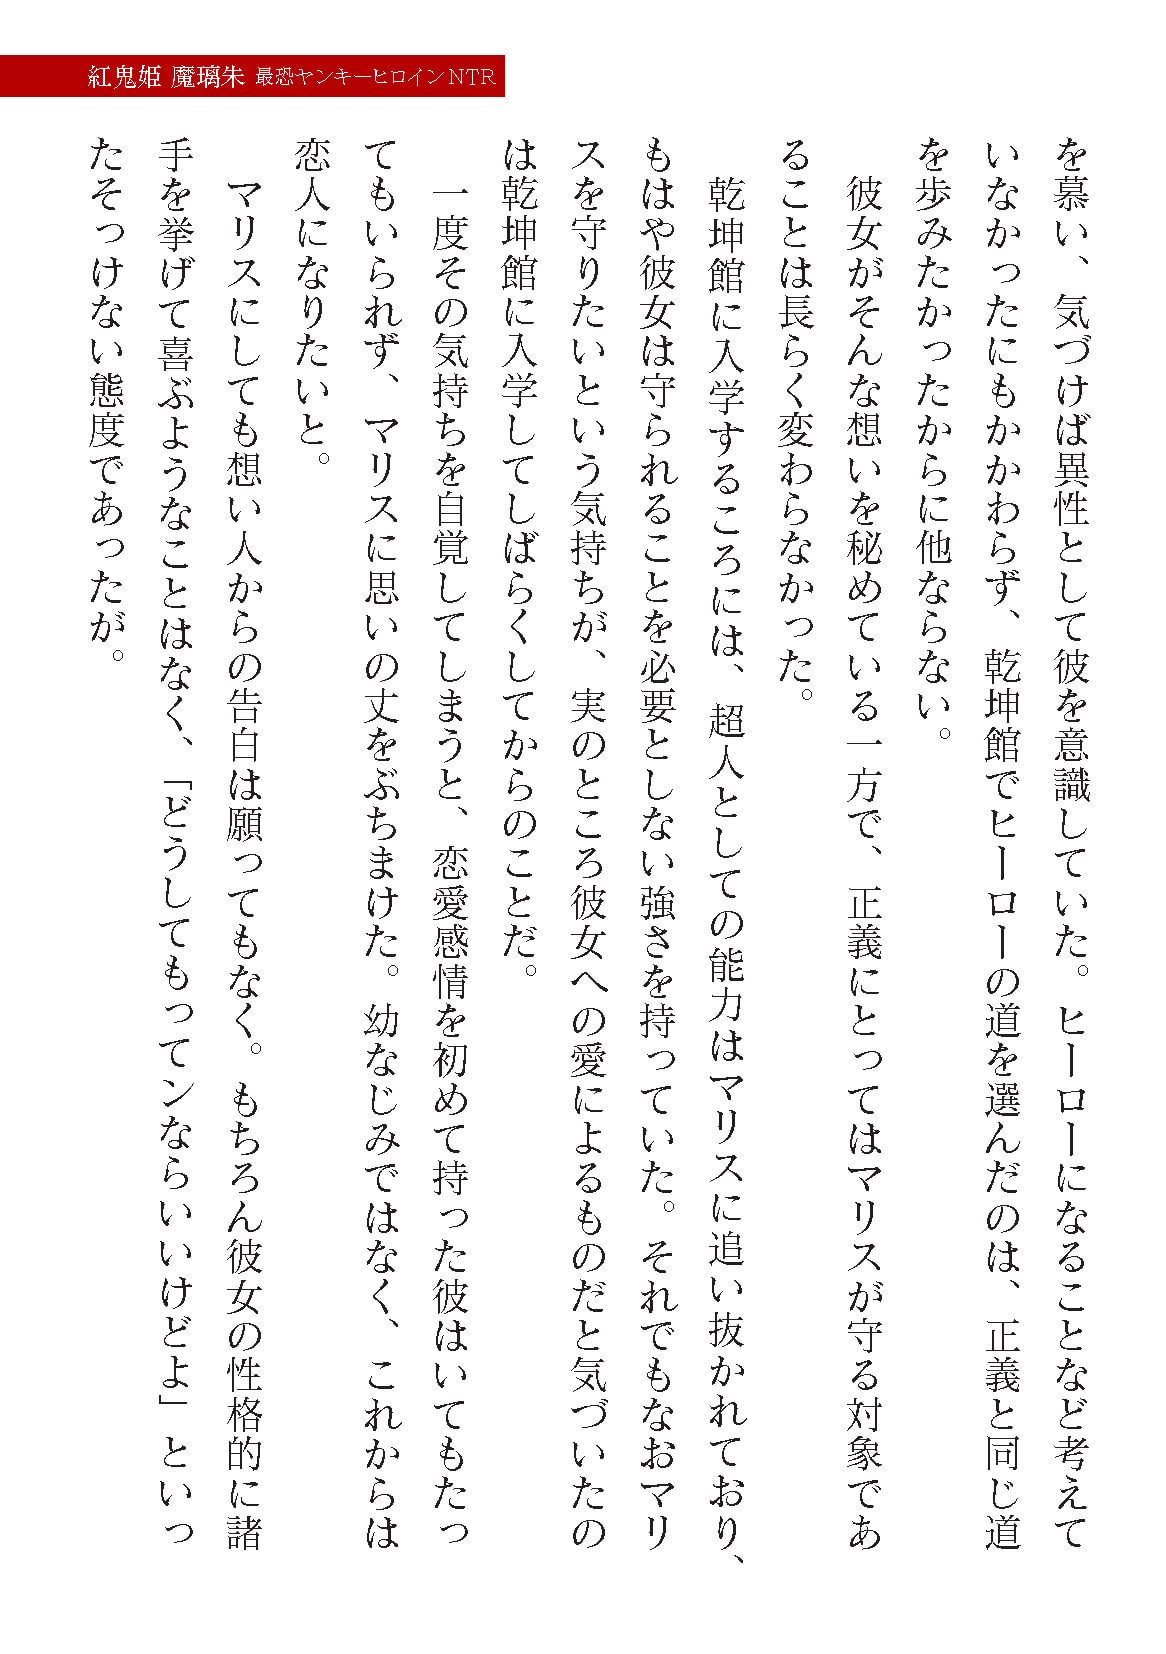 紅鬼姫 魔璃朱 最恐ヤンキーヒロインNTR
を慕い、気づけば異性として彼を意識していた。ヒーローになることなど考えて
いなかったにもかかわらず、乾坤館でヒーローの道を選んだのは、正義と同じ道
を歩みたかったからに他ならない。
彼女がそんな想いを秘めている一方で、正義にとってはマリスが守る対象であ
ることは長らく変わらなかった。
乾坤館に入学するころには、超人としての能力はマリスに追い抜かれており、
もはや彼女は守られることを必要としない強さを持っていた。それでもなおマリ
スを守りたいという気持ちが、実のところ彼女への愛によるものだと気づいたの
は乾坤館に入学してしばらくしてからのことだ。
一度その気持ちを自覚してしまうと、恋愛感情を初めて持った彼はいてもたっ
てもいられず、マリスに思いの丈をぶちまけた。幼なじみではなく、これからは
恋人になりたいと。
マリスにしても想い人からの告白は願ってもなく。もちろん彼女の性格的に諸
手を挙げて喜ぶようなことはなく、「どうしてもってンならいいけどよ」といっ
たそっけない態度であったが。